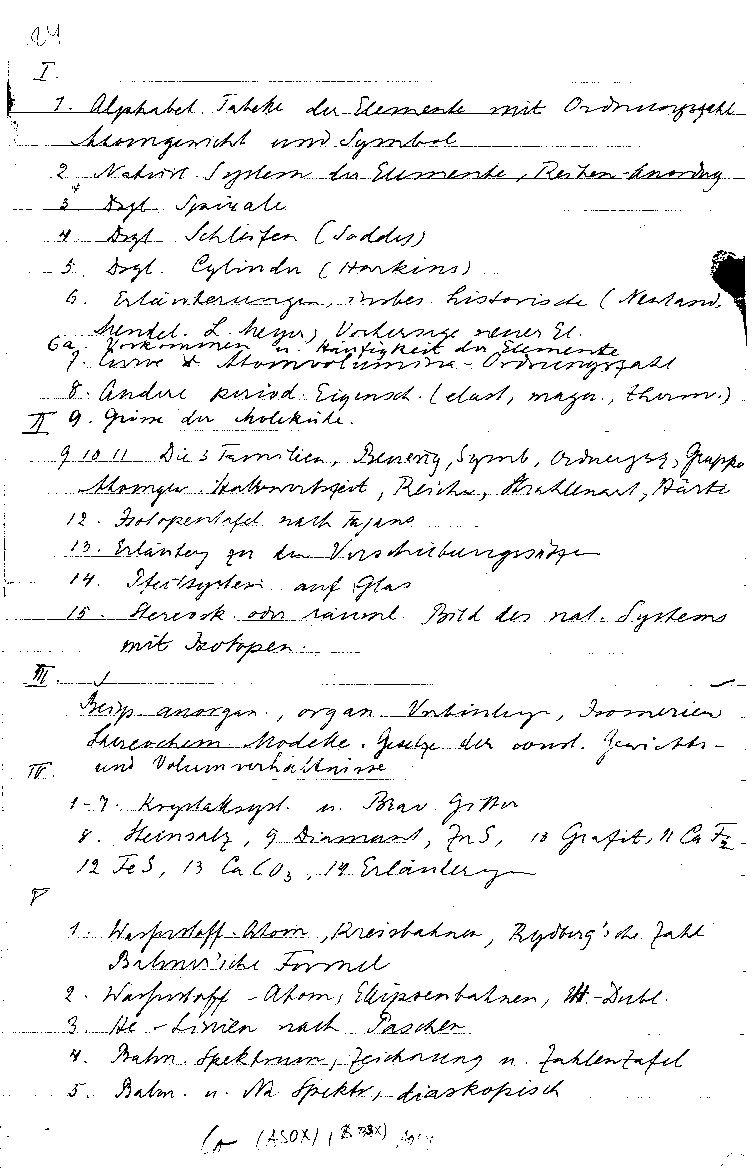 24
I.
1. Alphabet. Tabelle der Elemente mit Ordnungszahl
Atomgewicht und Symbol
2 Natürl. System der Elemente, Reihen-Anordng
3 Dsgl. Spirale
4 Dsgl. Schleifen (Soddy)
5. Dsgl. Cylinder (Harkins)
6. Erläuterungen, insbes. historische (Newland,
Mendel. L. Meyer) Vorhersage neuer El.
6a. Vorkommen u. Häufigkeit der Elemente
7. Curve d Atomvolumina - Ordnungszahl
8. Andere period. Eigensch. (elast, magn., therm.)
II 9. Grösse der Moleküle.
9 10 11 Die 3 Familien, Benenng, Symb, Ordnungsz, Gruppe
Atomgew. Halbwertszeit, Reichw, Strahlenart, Härte
12. Isotopentafel nach Fajans
13. Erläuterg zu den Verschiebungssätzen
14. Pfeilsystem auf Glas
15. Stereosk. oder räuml. Bild des nat. Systems
mit Isotopen.
III
Beisp. anorgan., organ Verbindungn, Isomerien
Stereochem Modelle. Gesetze der const. Gewichts-
und Volumverhältnisse
IV.
1-7. Krystallsyst. u. Brav. Gitter
8. Steinsalz, 9 Diamant, ZnS, 10 Grafit, 11 CaF2
12 FeS, 13 CaCO3, 14 Erläuterungn
V
1. Wasserstoff-Atom, Kreisbahnen, Rydberg'sche Zahl
Balmer'sche Formel
2. Wasserstoff-Atom, Ellipsenbahnen, H-Dubl.
3. He-Linien nach Paschen
4. Balm. Spektrum, Zeichnung u. Zahlentafel
5. Balm. u. Na Spektr, diaskopisch